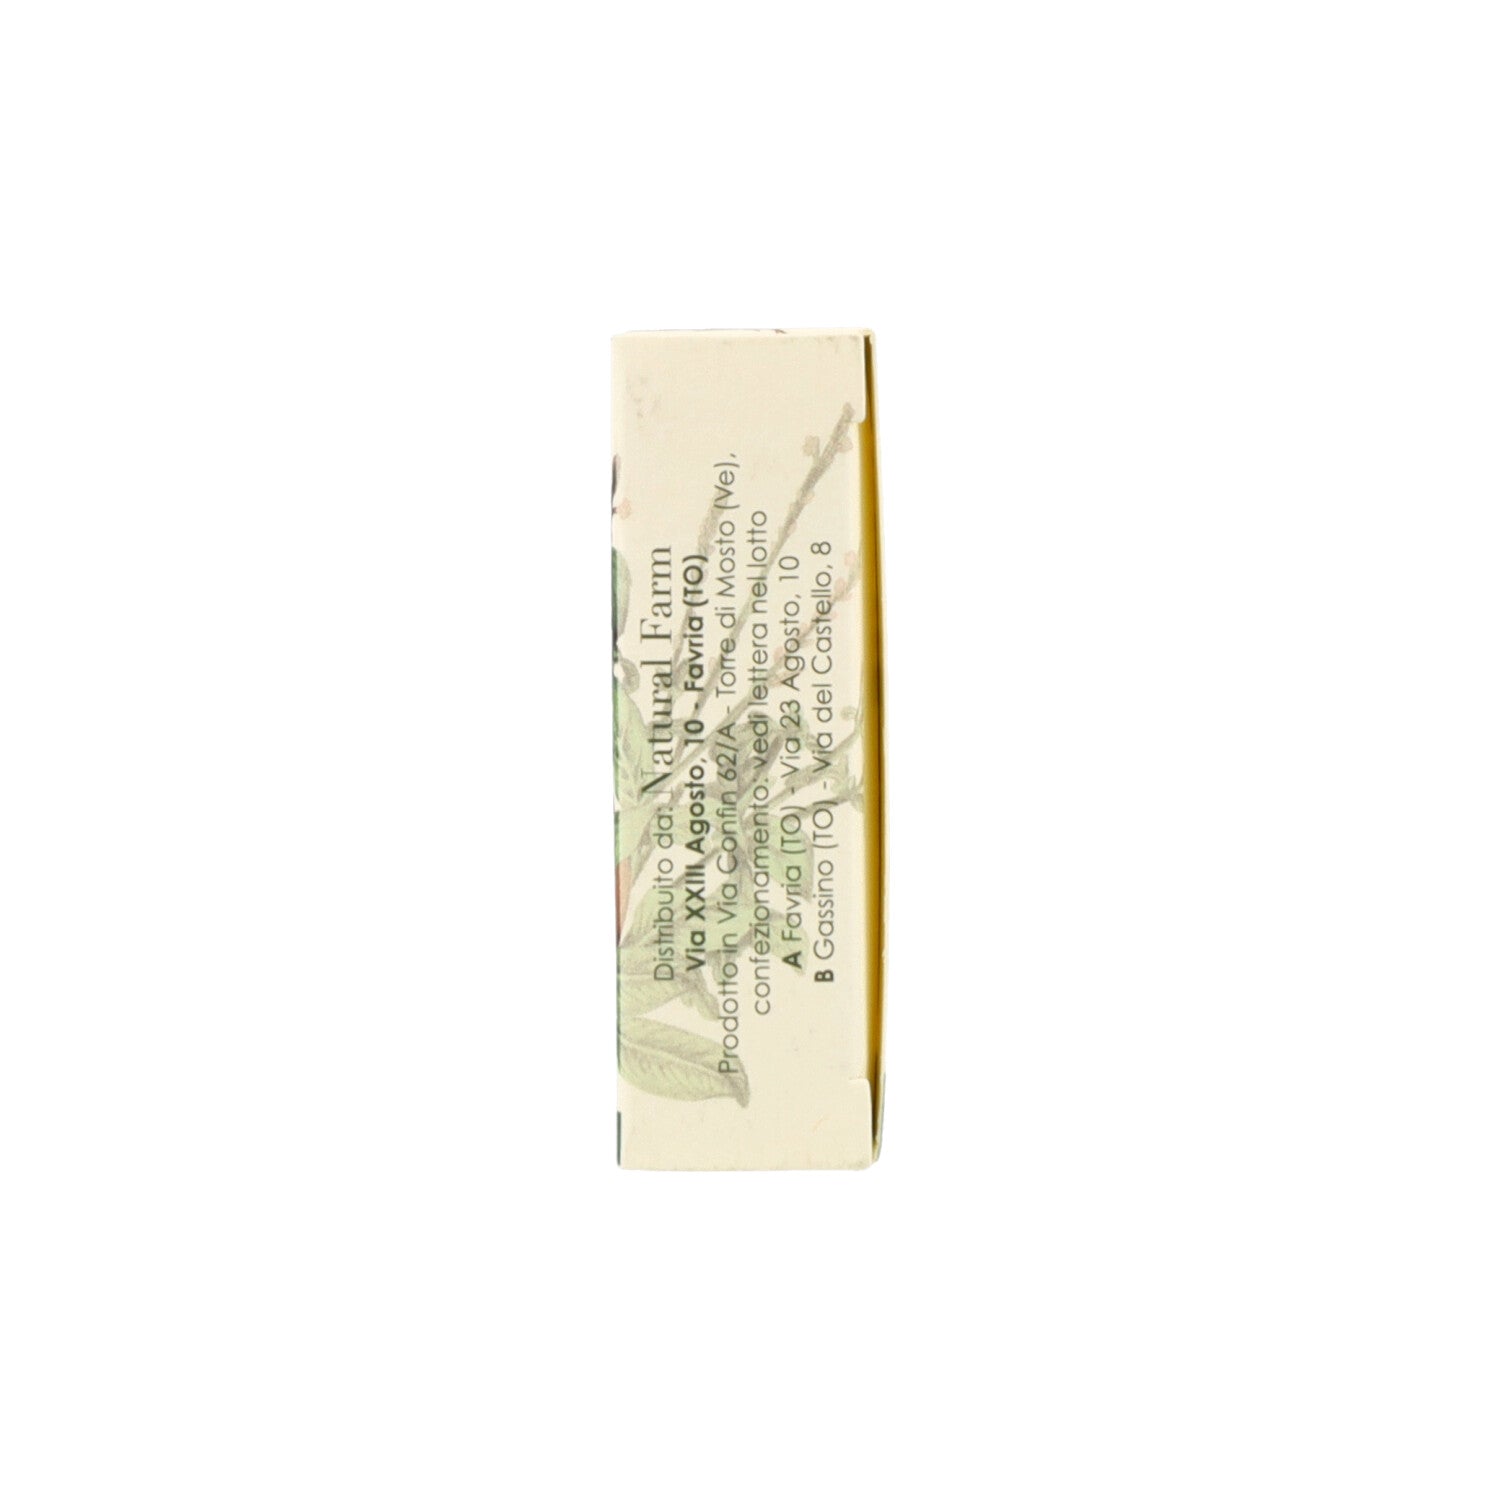 Distribuito da: Natural Farm
Via XXIII Agosto, 10 - Favria (TO)
Prodotto in Via Confin 62/A - Torre di Mosto (Ve),
confezionamento: vedi lettera nel lotto
A Favria (TO) - Via 23 Agosto, 10
B Gassino (TO) - Via del Castello, 8